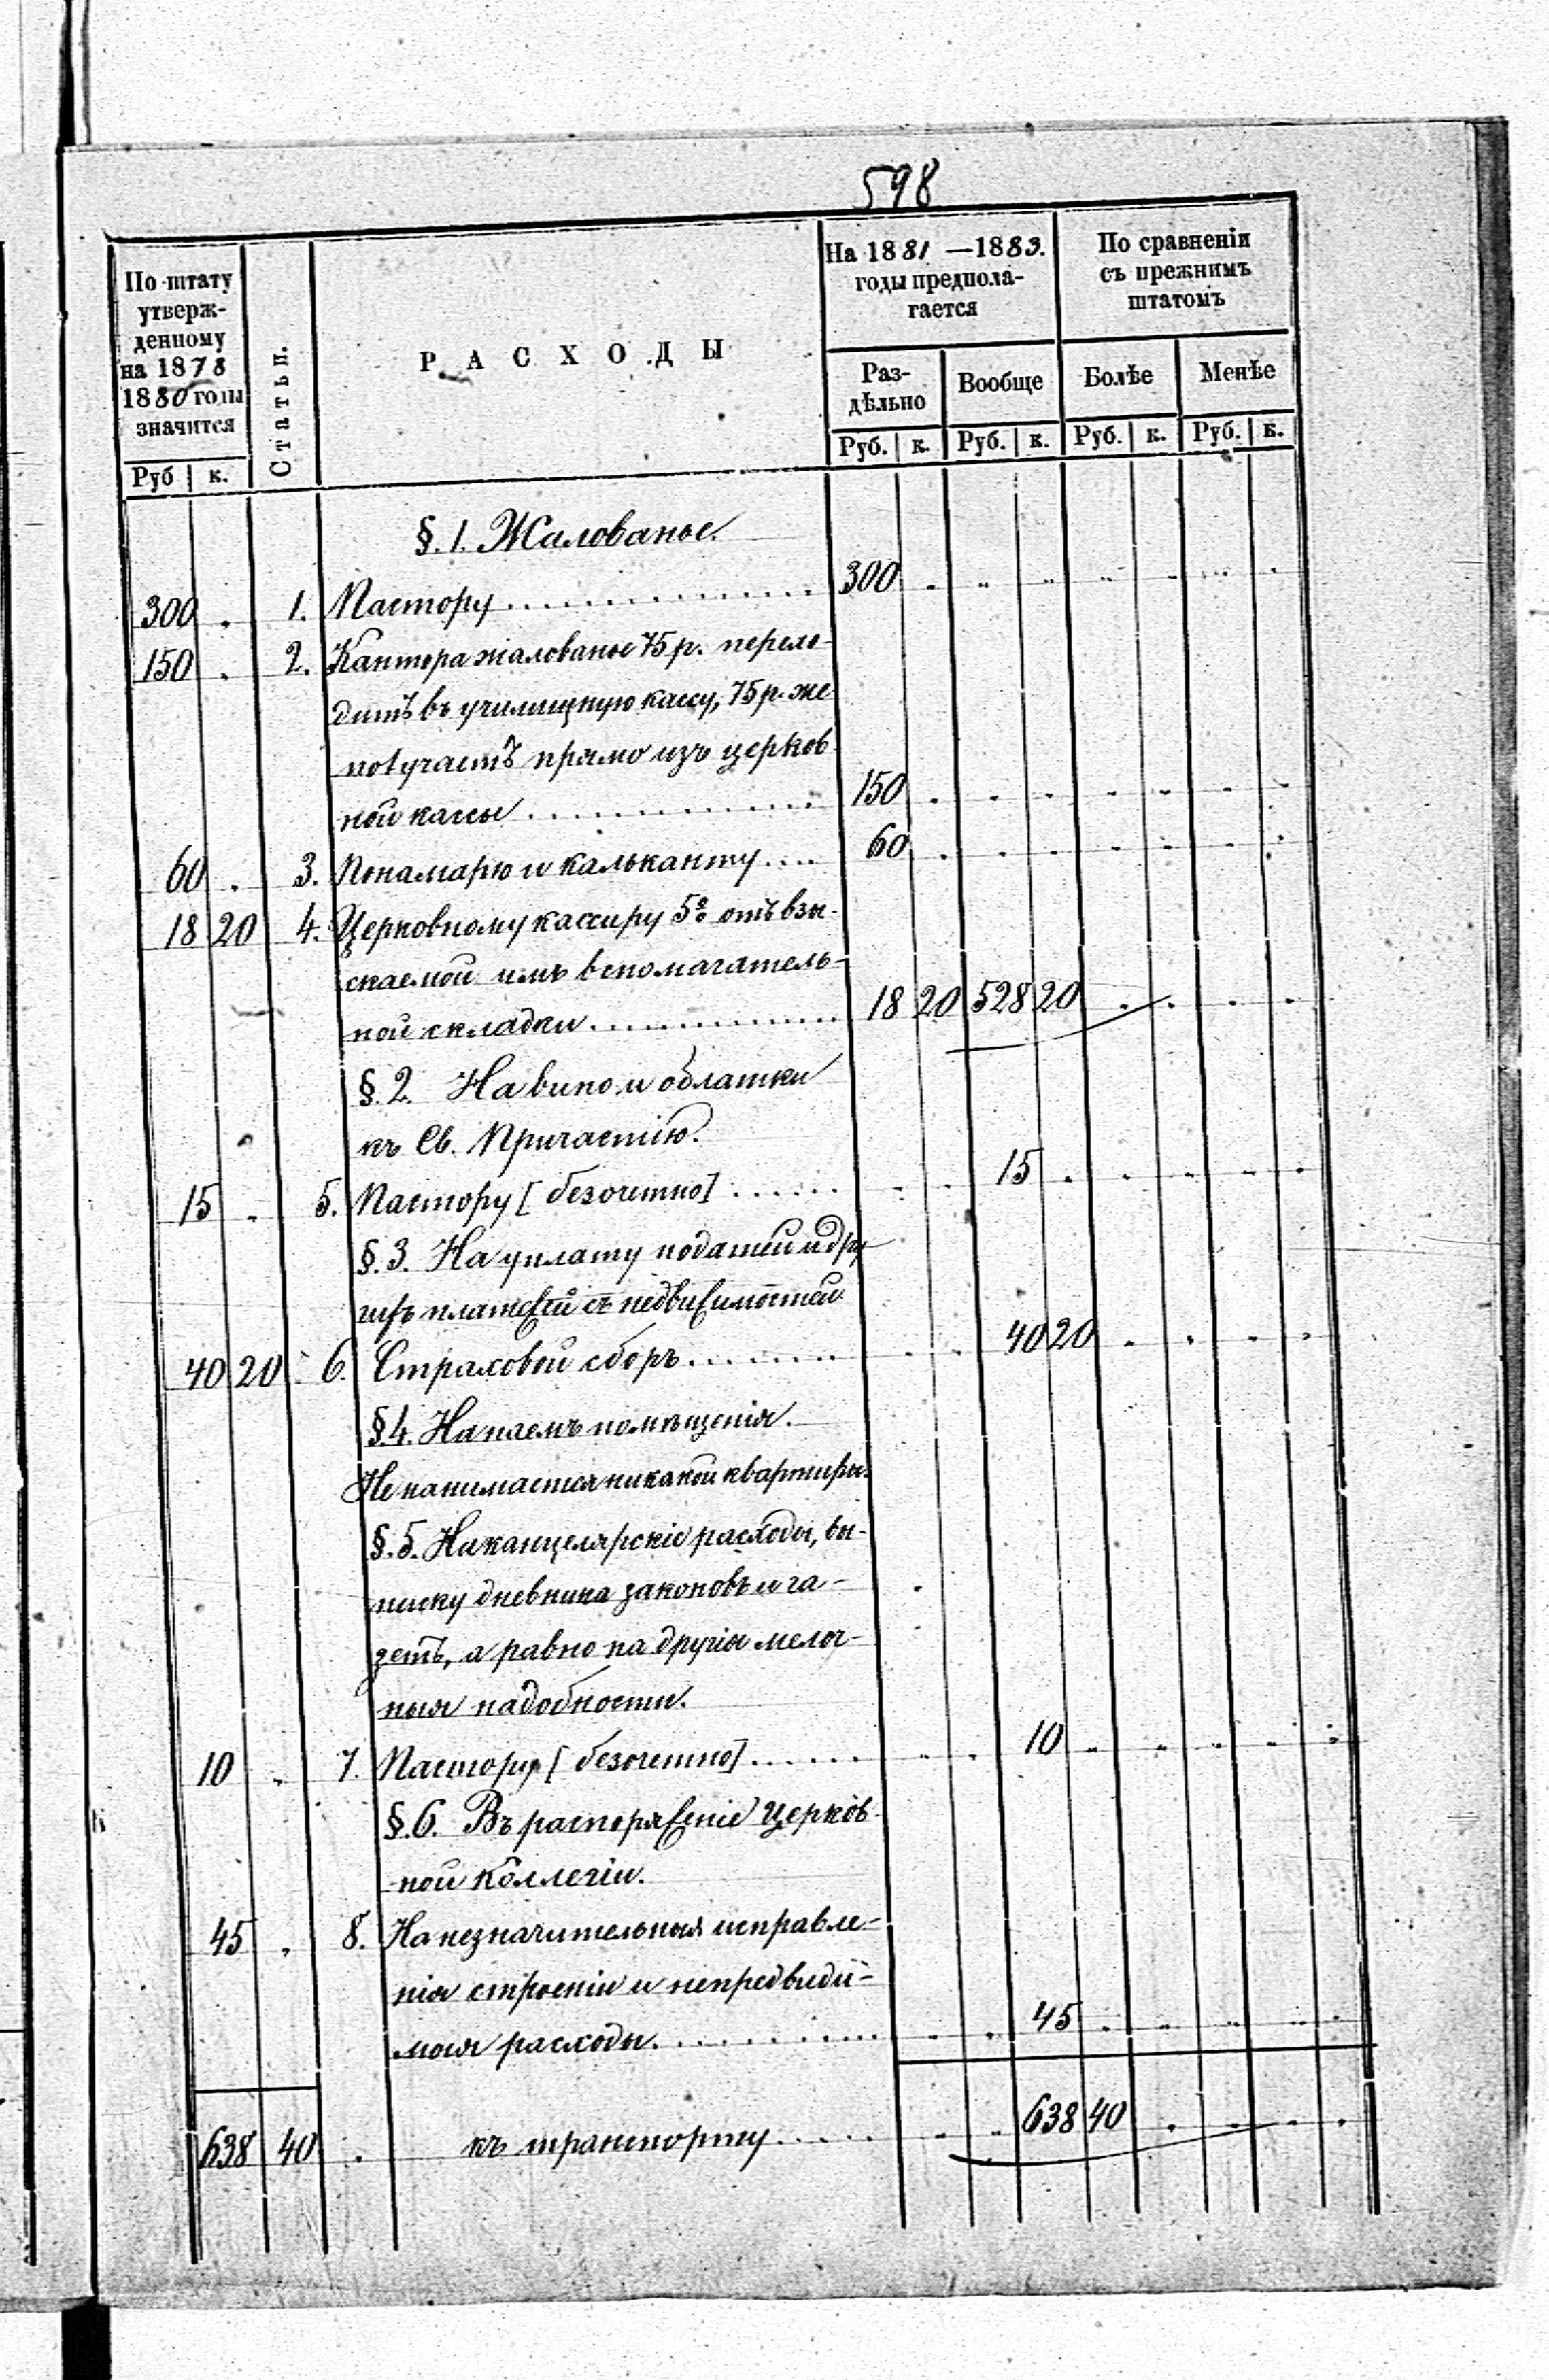 598
По штату
утверж-
денному
на 1878
1880 годы
значится
Руб к.
Статьи.
РАСХОДЫ
На 1881 —1883.
годы предпола-
гается
Раз-
дѣльно
Вообще
Руб. к. Руб. к.
По сравненіи
съ прежнимъ
штатомъ
Болѣе Менѣе
Руб. к. Руб. к.
§. 1. Жалованье.
300 . 1. Пастору . . . . . . . . . . . . . . . 300
150 . 2. Кантора жалованье 75 р. перехо-
дитъ въ училищную кассу, 75 р. же
получаетъ прямо изъ церков
ной кассы . . . . . . . . . . . . . . 150
60 . 3. Понамарю и кальканту . . . . 60
18 20 4. Церковному кассиру 5% отъ взы-
скаемой имъ вспомагатель-
ной складки . . . . . . . . . . . . . . 18 20 528 20
§. 2. На вино и облатки
къ Св. Причастію.
15 . 5. Пастору [безочетно] . . . . . . 15
§. 3. На уплату податей и дру
гихъ платежей съ недвижимостей
40 20 6. Страховой сборъ . . . . . . . . . 40 20
§. 4. На наемъ помѣщенія.
Не нанимается никакой квартиры.
§. 5. На канцелярскіе расходы, вы-
писку дневника законовъ и га-
зетъ, а равно на другія мелоч-
ныя надобности.
10 . 7. Пастору [безочетно] . . . . . . 10
§. 6. Въ распоряженіе Церков-
ной Коллегіи.
45 . 8. На незначительныя исправле-
нія строеніи и непредвиди-
мыя расходы . . . . . . . . . . . 45
638 40 . къ транспорту . . . . . . 638 40